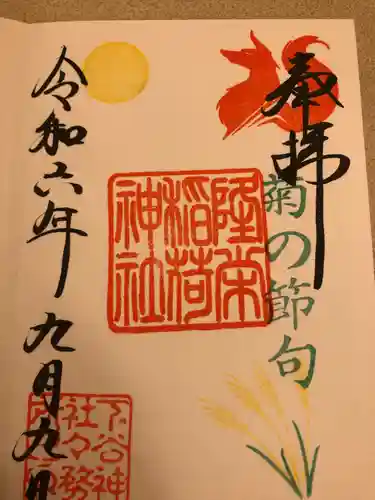 奉拝
菊の節句
隆栄
稲荷
神社
令和六年 九月九日
下谷神
社々務